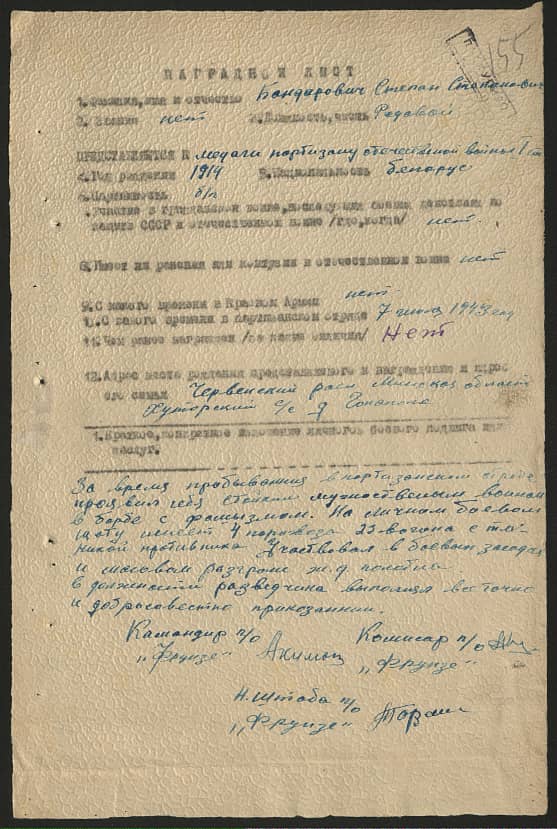 155
НАГРАДНОЙ ЛИСТ
1. Фамилия, имя и отчество Бондарович Степан Степанович
2. Звание нет 3. Должность, часть Радовой
ПРЕДСТАВЛЯЕТСЯ К медали партизану отечественой войны I ст
4. Год рождения 1914 5. Национальность беларус
6. Партийность б/п
7. Участие в гражданской войне, последующих боевых действиях по
защите СССР и отечественной войне /где, когда/ нет.
8. Имеет ли ранения или контузии в отечественной войне нет
9. С какого времени в Красной Армии нет
10. С какого времени в партизанском отряде 7 июня 1943 год
11. Чем ранее награжден /за какие отличия/ Нет
12. Адрес места рождения представляемого к награждению и адрес
его семьи Червенский раен Минской области
Хуторский с/с д
1. Краткое, конкретное изложение личного боевого подвига или
заслуг.
За время пробывания в партизанском отряде
проявил себя стойким мужественым воином
в борбе с фашызмом. На личном боевом
щоту имеет 4 паровоза 23 вогона с тех-
никой противника Участвовал в боевых засадах
и масовом разгроме ж.д. полотна
в должности разведчика выполнял все точно
и добросовестно приказании.
Камандир п/о Комисар п/о
„Фрунзе“ „Фрунзе“
Н. Штоба п/о
„Фрунзе“